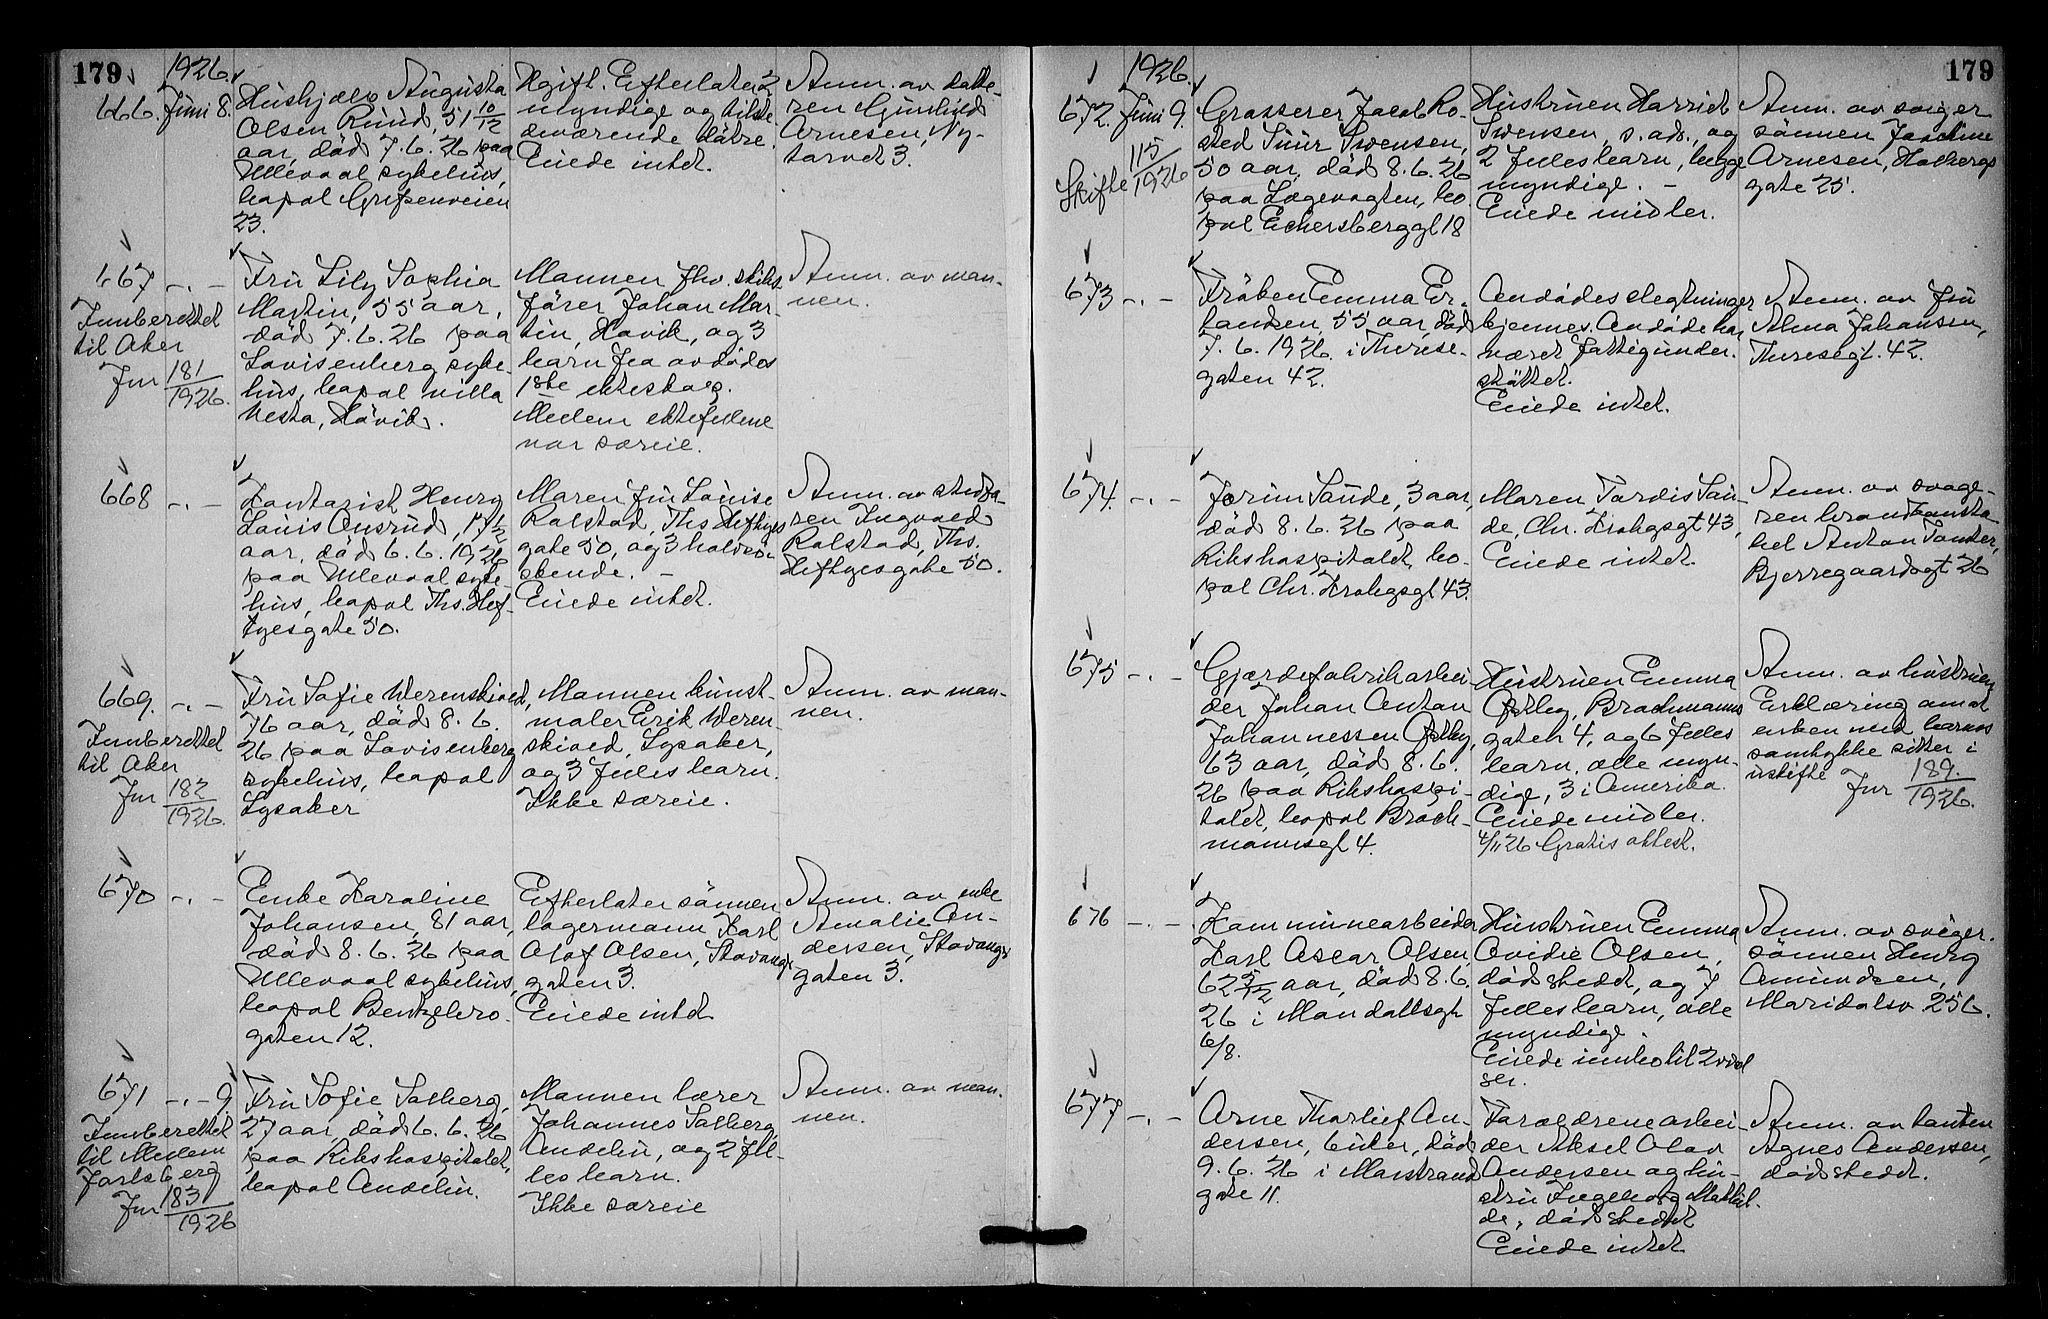 179
1926.
666. Juni 8.
Hushjelp Augusta
Olsen Ruud, 51 10/12
aar, død 7.6.26 paa
Ullevaal sykehus,
bopæl Grefsenveien
23.
Ugift. Efterlater 2
myndige og tilste-
deværende døtre.
Eiede intet.
Anm. av datte-
ren Gunhild
Arnesen, Ny-
torvet 3.
667 -.-
Innberettet
til Aker
Jnr 181/1926.
Fru Lily Sophia
Martin, 55 aar,
død 7.6.26 paa
Lovisenberg syke-
hus, bopæl villa
Vesta, Høvik.
Mannen fhv. skibs-
fører Johan Mar-
tin, Høvik, og 3
barn fra avdødes
1ste ekteskap.
Mellem ektefellene
var særeie.
Anm. av man-
nen.
668 -.-
Kontorist Henry
Louis Ousrud, 17 1/2
aar, død 6.6.1926
paa Ullevaal syke-
hus, bopæl Ths. Hef-
tyesgate 50.
Moren fru Louise
Rolstad, Ths Heftyes
gate 50, og 3 halvsø-
skende. -
Eiede intet.
Anm. av stedfa-
ren Ingvald
Rolstad, Ths.
Heftyesgate 50.
669. -.-
Innberettet
til Aker
Jnr 182/1926.
Fru Sofie Werenskiold,
76 aar, død 8.6.
26 paa Lovisenberg
sykehus, bopæl
Lysaker
Mannen kunst-
maler Erik Weren
skiold, Lysaker,
og 3 fælles barn.
Ikke særeie.
Anm. av man-
nen.
670 -.-
Enke Karoline
Johansen, 81 aar,
død 8.6.26 paa
Ullevaal sykehus,
bopæl Bentzebro-
gaten 12.
Efterlater sønnen
lagermann Karl
Olaf Olsen, Stavangr
gaten 3.
Eiede intet
Anm. av enke
Amalie An-
dersen, Stavangr
gaten 3.
671 -.- 9.
Innberettet
til Mellem
Jarlsberg
Jnr 183/1926
Fru Sofie Solberg,
27 aar, død 6.6.26
paa Rikshospitalet,
bopæl Andebu.
Mannen lærer
Johannes Solberg
Andebu, og 2 fæl-
les barn.
Ikke særeie
Anm. av man-
nen.
179
1926.
672. Juni 9.
Skifte 115/1926
Grosserer Jacob Ro-
sted Suur Svensen,
50 aar, død 8.6.26
paa Lægevagten, bo-
pæl Eckersberggt 18
Hustruen Harriet
Svensen, s. ad., og
2 fælles barn, begge
myndige. -
Eiede midler.
Anm. av sviger
sønnen Joachim
Arnesen, Holbergs
gate 25.
673 -.-
Frøken Emma Er-
landsen, 55 aar, død
7.6.1926. i Therese-
gaten 42.
Avdødes slegtninger
kjennes. Avdøde har
været fattigunder-
støttet.
Eiede intet.
Anm. av fru
Alma Johansen,
Theresegt. 42.
674. -.-
Jorun Saude, 3 aar,
død 8.6.26 paa
Rikshospitalet, bo-
pæl Chr. Krohgsgt 43.
Moren Tordis Sau-
de, Chr. Krohgsgt 43,
Eiede intet.
Anm. av svoge-
ren brandkonsta-
bel Anton Tander,
Bjerregaardsgt 26
675 -.-
Gjærdefabrikarbei
der Johan Anton
Johannessen Østby,
63 aar, død 8.6.
26 paa Rikshospi-
talet, bopæl Brock-
mannsgt 4.
Hustruen Emma
Østby, Brochmanns
gaten 4, og 6 fælles
barn, alle myn-
dige, 3 i Amerika.
Eiede midler.
4/11 26 Gratis attest.
Anm. av hustruen
Erklæring om at
enken med barnas
samtykke sitter i
uskifte Jnr 189/1926.
676 -.-
Kommunearbeider
Karl Oscar Olsen,
62 5/12 aar, død 8.6.
26 i Mandallsgt
6/8.
Hustruen Emma
Ovidie Olsen,
dødstedet, og 7
fælles barn, alle
myndige.
Eiede innbo til 2 værel
ser.
Anm. av sviger-
sønnen Henry
Amundsen,
Maridalsv. 256.
677 -.-
Arne Thorleif An-
dersen, 6 uker, død
9.6.26 i Marstrand
gate 11.
Forældrene arbei-
der Aksel Olav
Andersen og hu-
stru Ingeborg Mathil-
de, dødstedet
Eiede intet
Anm. av tanten
Agnes Andersen,
dødstedet.